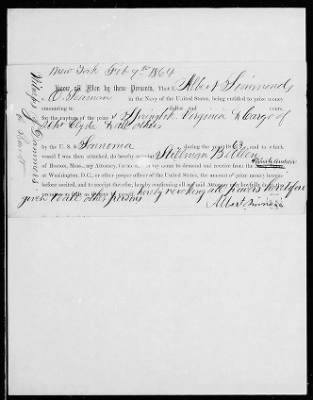 New York Feb 9th 1864
Know all Men by these Presents, That I Albert Simmons
A Seaman in the Navy of the United States, being entitled to prize money
amounting to dollars and cents,
for the capture of the prize s Springbok, Virginia & Cargo of
Str Clyde & all others
by the U. S. S. Sonoma during the year 186 and to which
vessel I was then attached, do hereby appoint Stillman B Allen
of Boston, Mass., my Attorney, for me to demand and receive from the
at Washington, D.C., or other proper officer of the United States, the amount of prize money herein
before recited, and to receipt therefor, hereby confirming all my said Attorney may lawfully do
hereby revoking all powers heretofore
given to all other persons
Albert Simmons